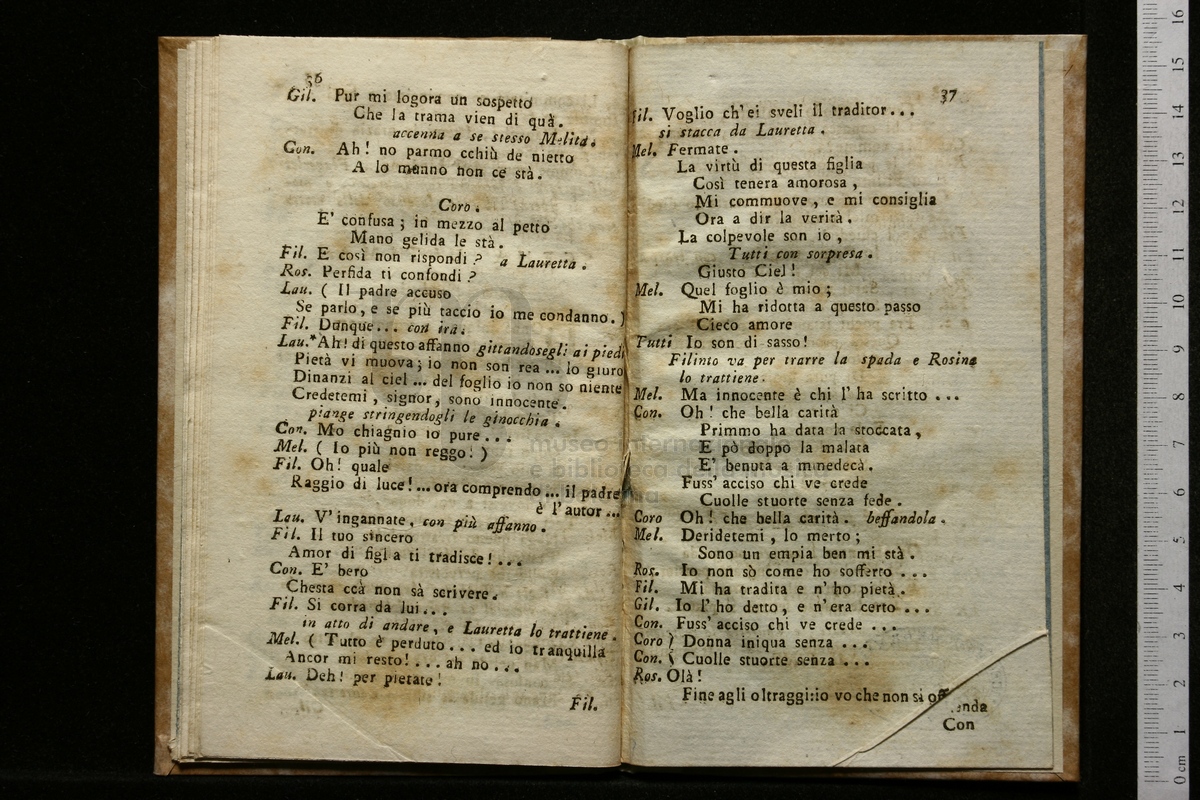 36
Gil. Pur mi logora un sospetto
Che la trama vien di quà.
accenna a se stesso Melita.
Con. Ah! no parmo cchiù de nietto
A lo munno non ce stà.
Coro.
E' confusa; in mezzo al petto
Mano gelida le stà.
Fil. E così non rispondi? a Lauretta.
Ros. Perfida ti confondi?
Lau. ( Il padre accuso
Se parlo, e se più taccio io me condanno. )
Fil. Dunque... con ira.
Lau. Ah! di questo affanno gittandosegli ai piedi
Pietà vi muova; io non son rea ... lo giuro
Dinanzi al ciel ... del foglio io non so niente
Credetemi, signor, sono innocente.
piange stringendogli le ginocchia.
Con. Mo chiagnio io pure...
Mel. ( Io più non reggo! )
Fil. Oh! quale
Raggio di luce!... ora comprendo ... il padre
è l'autor...
Lau. V'ingannate, con più affanno.
Fil. Il tuo sincero
Amor di figl a ti tradisce!...
Con. E' bero
Chesta ccà non sà scrivere.
Fil. Si corra da lui...
in atto di andare, e Lauretta lo trattiene.
Mel. ( Tutto è perduto... ed io tranquilla
Ancor mi resto!... ah no...
Lau. Deh! per pietate!
Fil.
37
Fil. Voglio ch'ei sveli il traditor...
si stacca da Lauretta.
Mel. Fermate.
La virtù di questa figlia
Così tenera amorosa,
Mi commuove, e mi consiglia
Ora a dir la verità.
La colpevole son io,
Tutti con sorpresa.
Giusto Ciel!
Mel. Quel foglio è mio;
Mi ha ridotta a questo passo
Cieco amore
Tutti Io son di sasso!
Filinto va per trarre la spada e Rosina
lo trattiene.
Mel. Ma innocente è chi l'ha scritto ...
Con. Oh! che bella carità
Primmo ha data la stoccata,
E pò doppo la malata
E' benuta a mmedecà.
Fuss' acciso chi ve crede
Cuolle stuorte senza fede.
Coro Oh! che bella carità. beffandola.
Mel. Deridetemi, lo merto;
Sono un empia ben mi stà.
Ros. Io non sò come ho sofferto ...
Fil. Mi ha tradita e n'ho pietà.
Gil. Io l'ho detto, e n'era certo ...
Con. Fuss' acciso chi ve crede ...
Coro ) Donna iniqua senza ...
Con. ( Cuolle stuorte senza ...
Ros. Olà!
Fine agli oltraggi: io vo che non si off
enda
Con
museo internazionale
e biblioteca della musica
0 cm 1 2 3 4 5 6 7 8 9 10 11 12 13 14 15 16